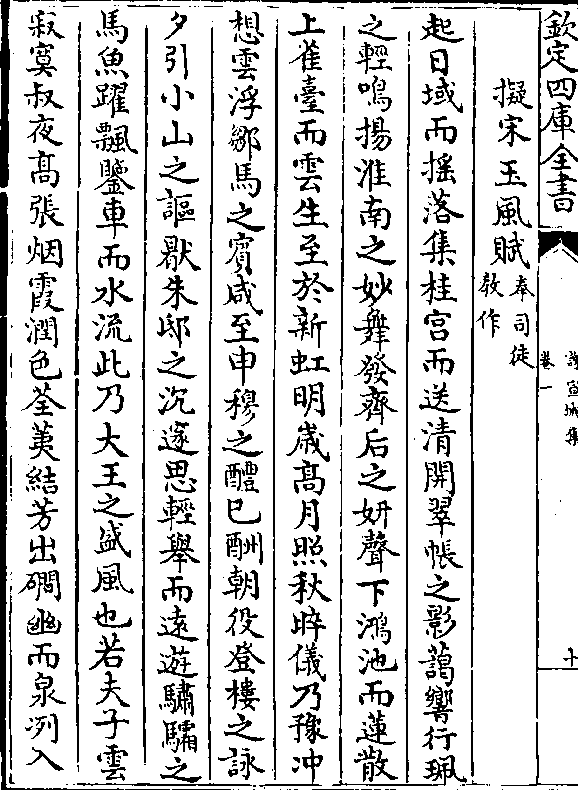 欽定四庫全書
謝宣城集
卷一
十
擬宋玉風賦奉司徒教作
起日域而揺落集桂宮而送清開翠帳之影藹響行珮
之輕鳴揚淮南之妙舞發齊后之妍聲下鴻池而蓮散
上雀臺而雲生至於新虹明歳髙月照秋晬儀乃豫冲
想雲浮鄒馬之賓咸至申穆之醴已酬朝役登樓之詠
夕引小山之謳厭朱邸之沉邃思輕舉而逺遊驌驦之
馬魚躍飄鑾車而水流此乃大王之盛風也若夫子雲
寂寞叔夜髙張烟霞潤色荃荑結芳出磵幽而泉冽入